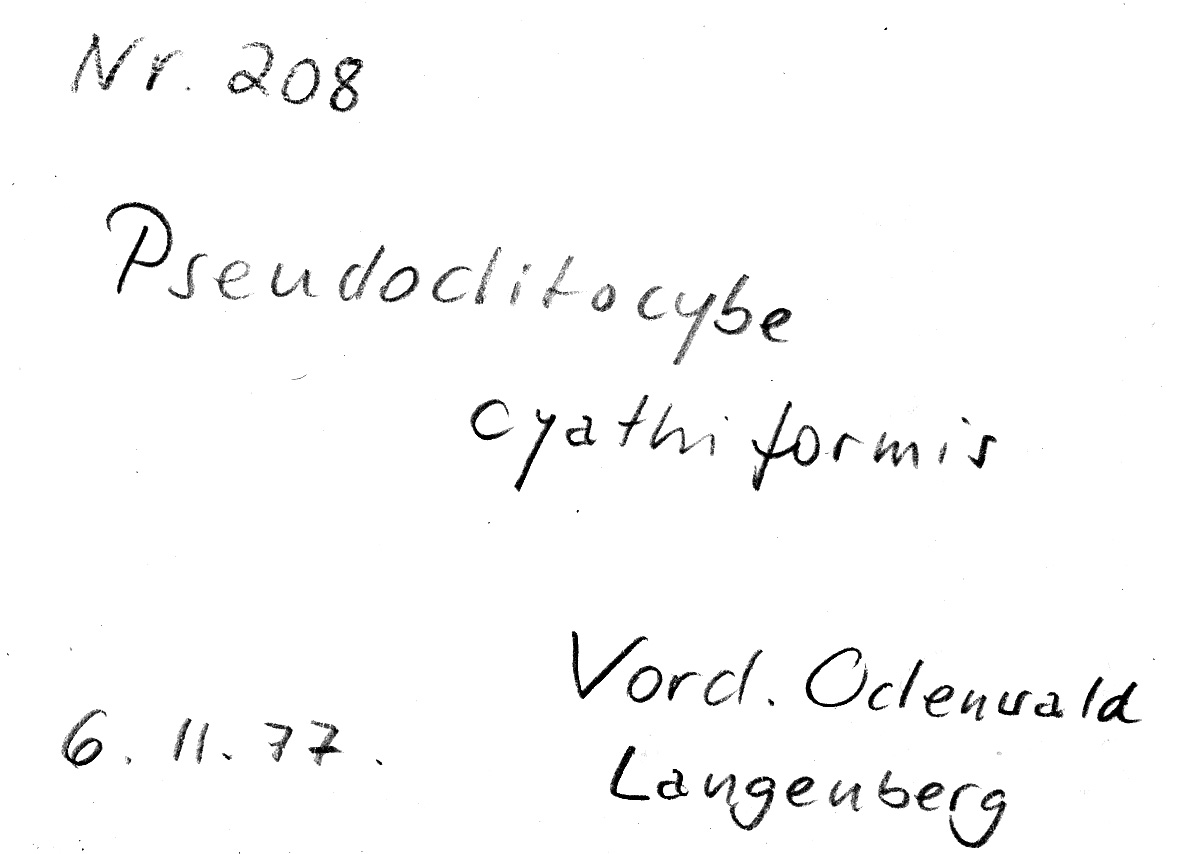 Nr. 208
Pseudoclitocybe
cyathiformis
Vord. Odenwald
6. 11. 77.
Langenberg